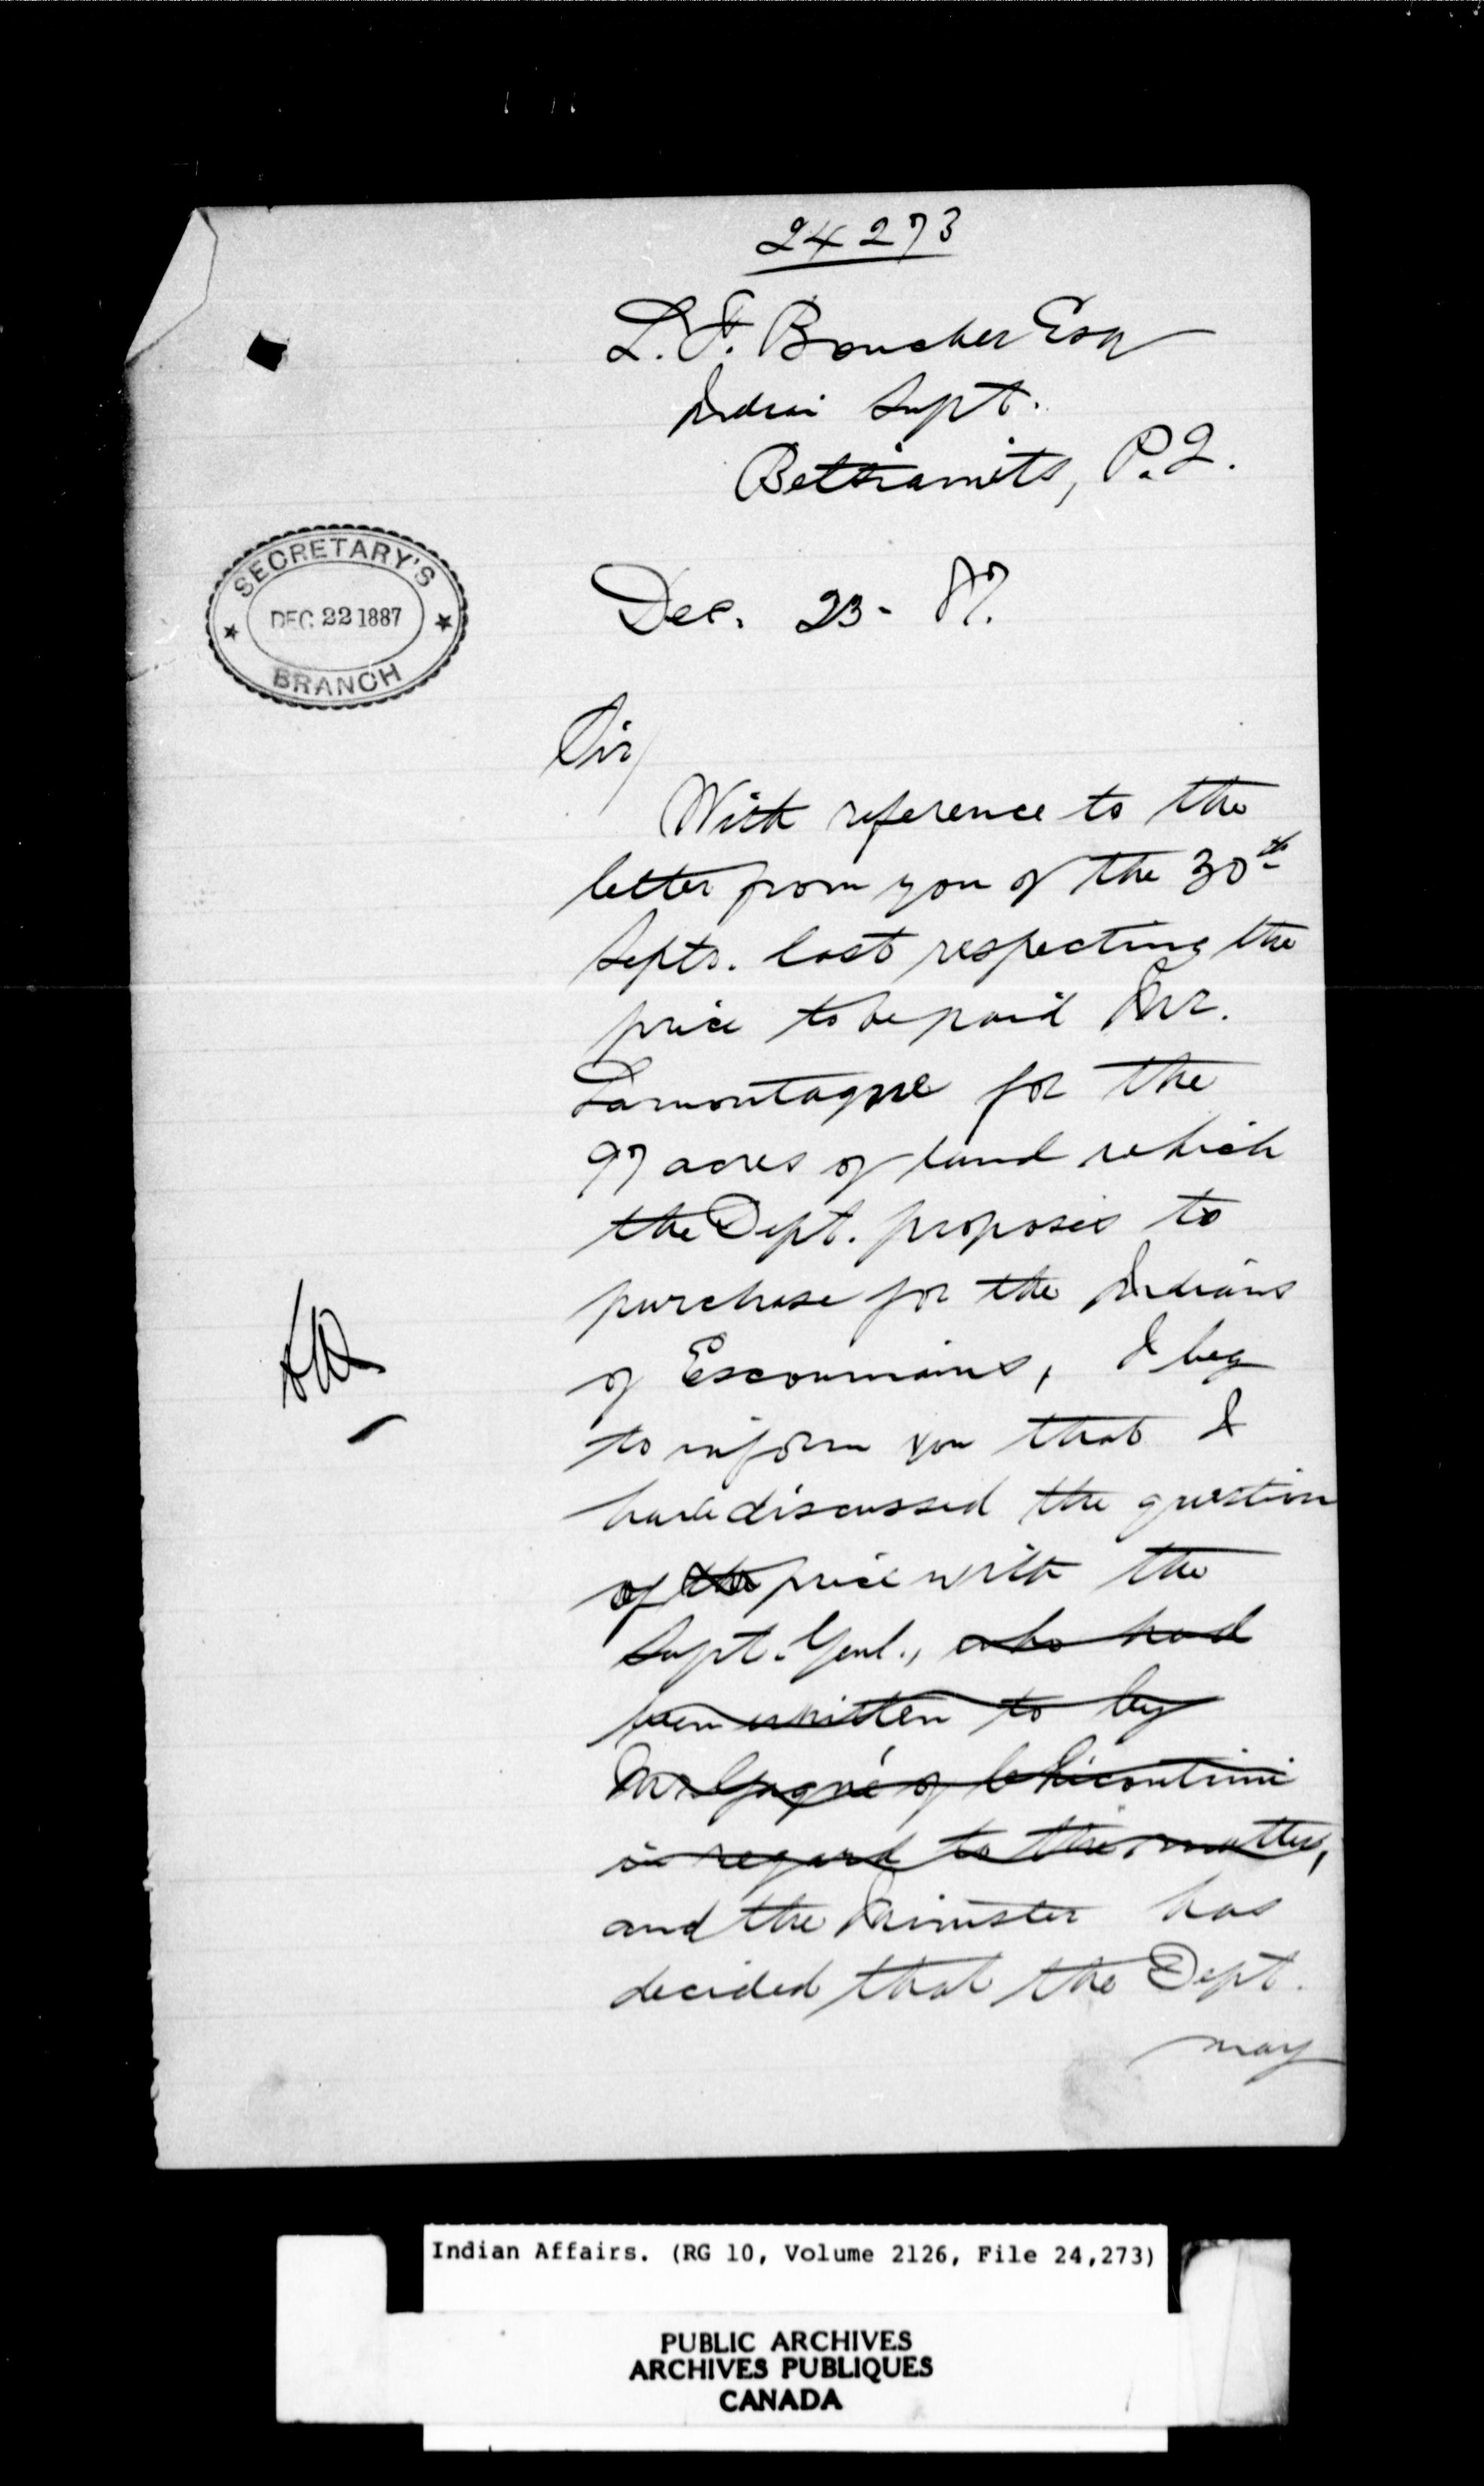 24273
L. F. Boucher Esq
Indian Supt.
Betsiamits, P.Q.
SECRETARY'S
DEC 22 1887
BRANCH
Dec. 23 - 87.
Sir,
With reference to the
letter from you of the 30th
Septr. last respecting the
price to be paid Mr.
Lamontagne for the
97 acres of land which
the Dept. proposes to
purchase for the Indians
of Escoumains, I beg
to inform you that I
have discussed the question
of the price with the
Supt. Genl., who had
been written to by
Mr. Gagné of Chicoutimi
in regard to the matter,
and the Minister has
decided that the Dept.
may
Indian Affairs. (RG 10, Volume 2126, File 24,273)
PUBLIC ARCHIVES
ARCHIVES PUBLIQUES
CANADA